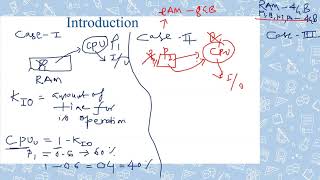 Introduction
Case-I
CPU P1
I/O
RAM
KIO = amount of
time for
I/O operation
CPUu = 1-KIO
P1 = 0.6 → 60%
1-0.6 = 0.4 = 40%
Case-II
RAM-8GB
P2
CPU
I/O
RAM-4GB
Case-III